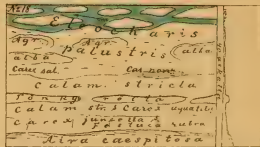 Eleocharis
Agr. Agr.
palustris alba
alba
Carex sal. Car. non
Calam. stricta
Calam. str. Carex aquatili
Carex juncella
Festuca rubra
Aira caespitosa